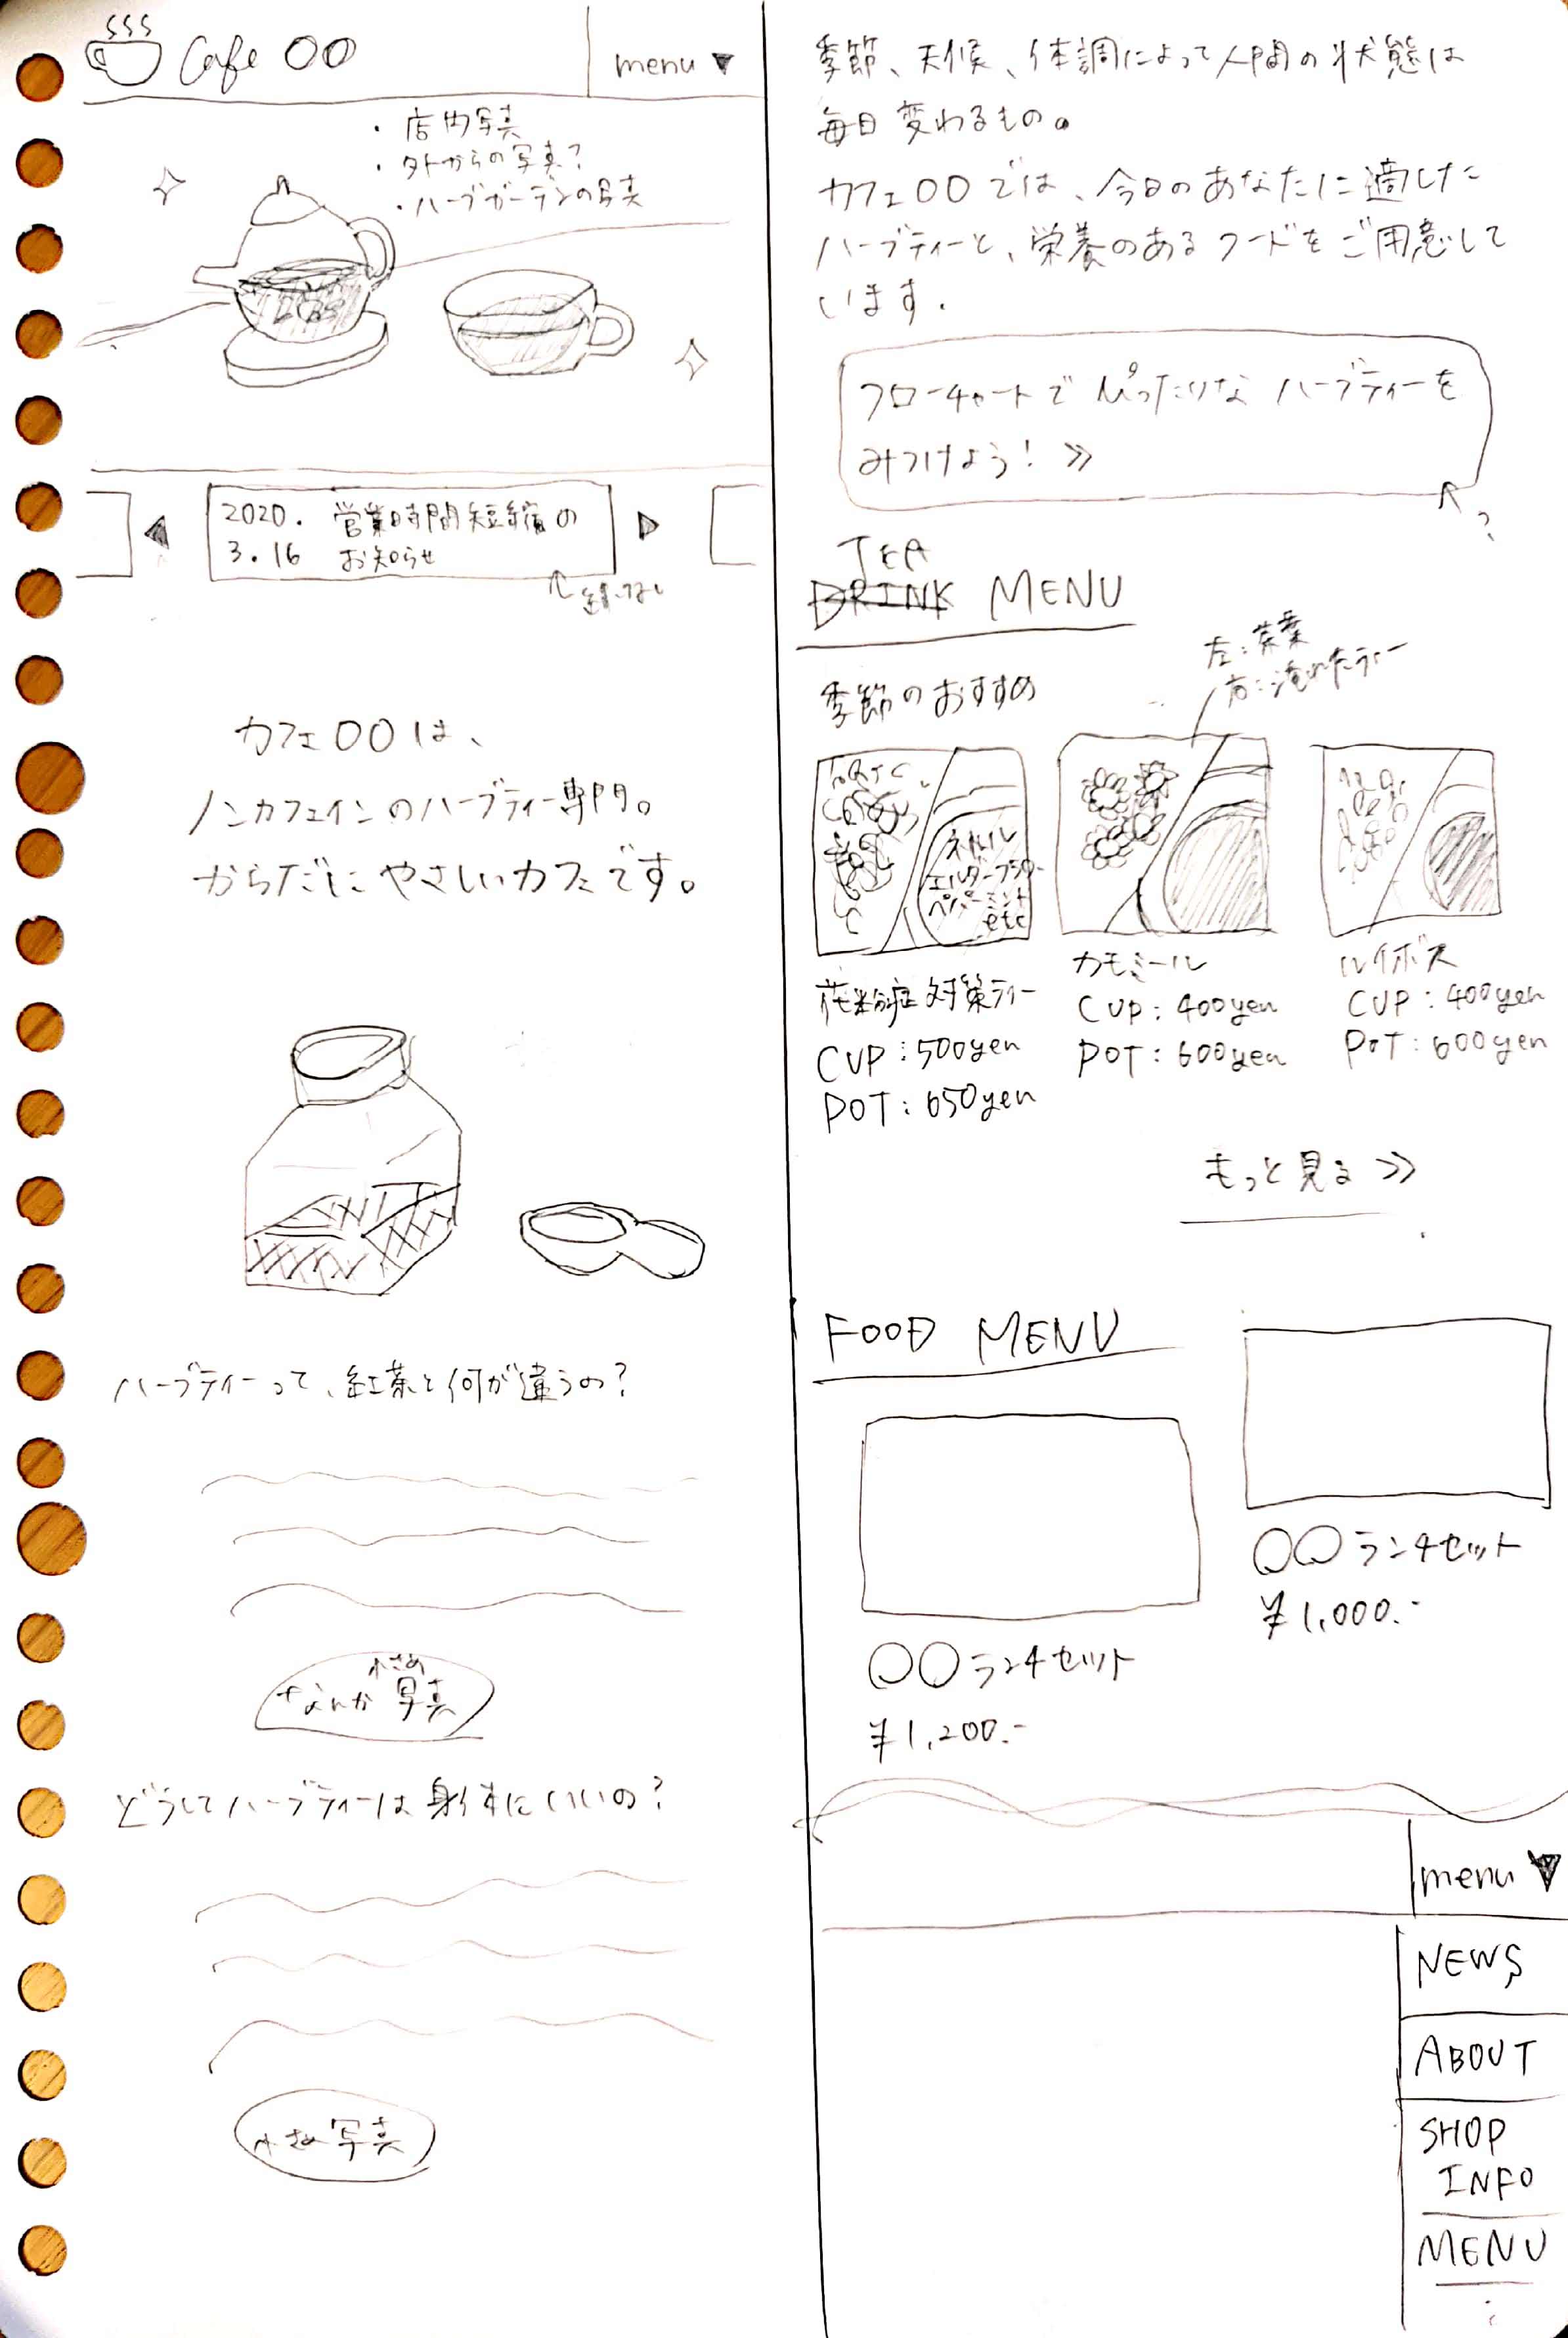 Cafe 〇〇
menu ▼
・店内写真
・外からの写真?
・ハーブガーデンの写真
2020. 営業時間短縮の
3.16 お知らせ
カフェ〇〇は、
ノンカフェインのハーブティー専門。
からだにやさしいカフェです。
ハーブティーって、紅茶と何が違うの?
小さめ
なんか写真
どうしてハーブティーは身体にいいの?
小さめ写真
季節、天候、体調によって人間の状態は
毎日変わるもの。
カフェ〇〇では、今日のあなたに適した
ハーブティーと、栄養のあるフードをご用意して
います.
フローチャートでぴったりなハーブティーを
みつけよう! >>
?
TEA
DRINK MENU
左:茶葉
右:淹れたティー
季節のおすすめ
ネトル
エルダーフラワー
ペパーミント
etc
花粉症対策ティー
CUP:500yen
POT:650yen
カモミール
CUP:400yen
POT:600yen
ルイボス
CUP:400yen
POT:600yen
もっと見る >>
FOOD MENU
〇〇ランチセット
¥1,200.-
〇〇ランチセット
¥1,000.-
menu ▼
NEWS
ABOUT
SHOP
INFO
MENU